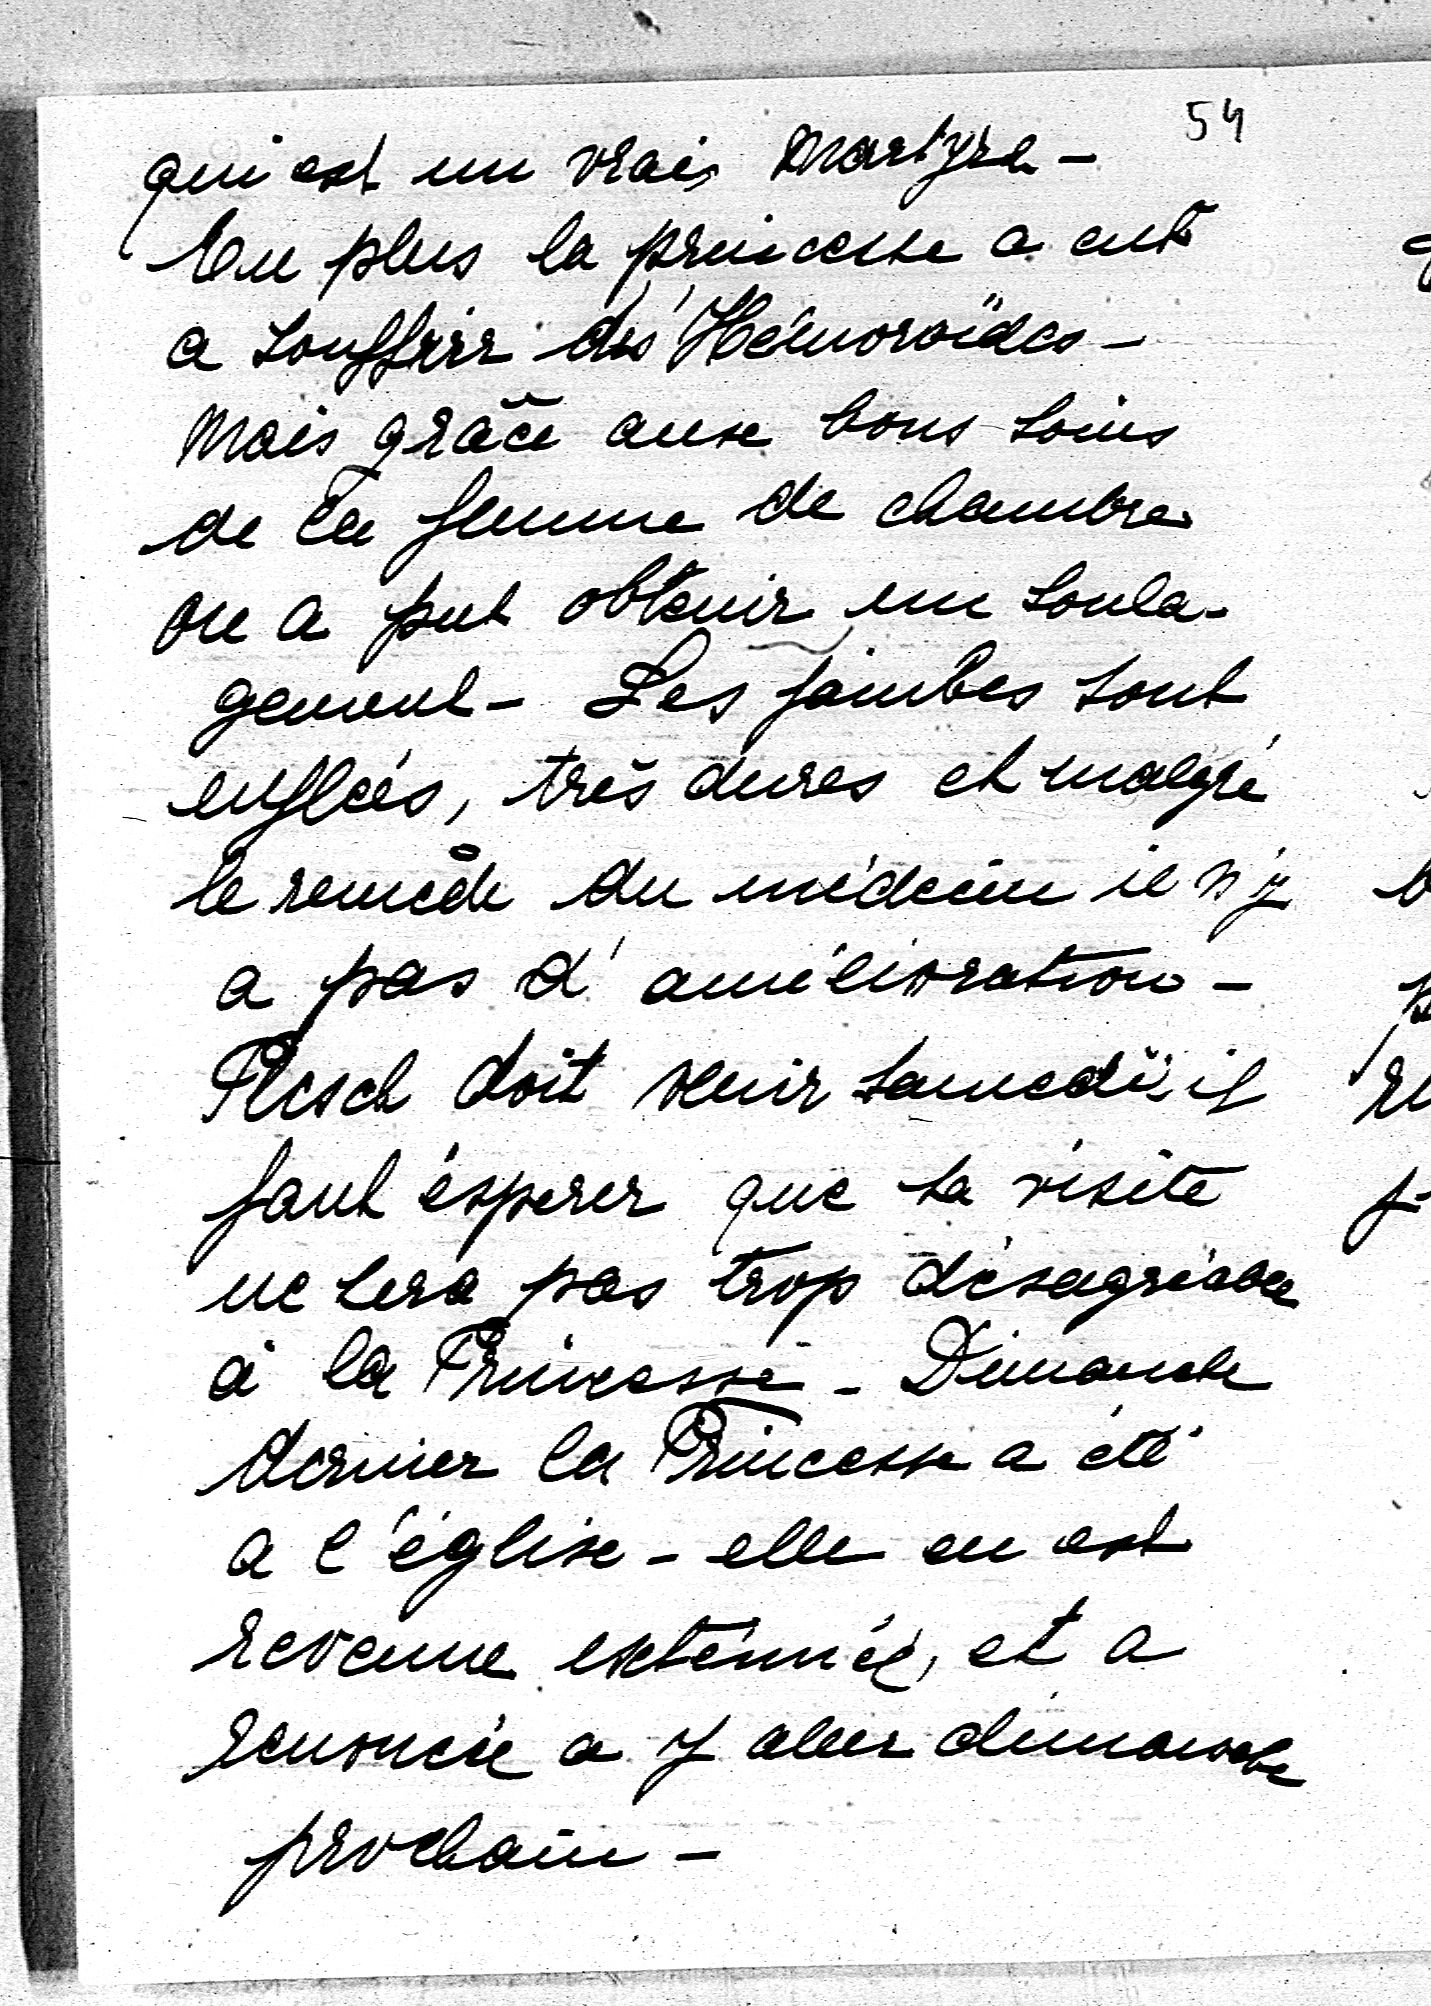 54
qui est un vrais martyre -
En plus la princesse a eut
a souffrir des Hémoroïdes -
mais grâce aux bons soins
de la femme de chambre
on a put obtenir un soula-
gement - Les jambes sont
enflées, très dures et malgré
le remède du médecin il n'y
a pas d'amélioration -
Plesch doit venir samedi, il
faut éspérer que sa visite
ne sera pas trop désagréable
à la Princesse - Dimanche
dernier la Princesse a été
a l'église - elle en est
revenue exténuée, et a
renoncée a y aller dimanche
prochain -